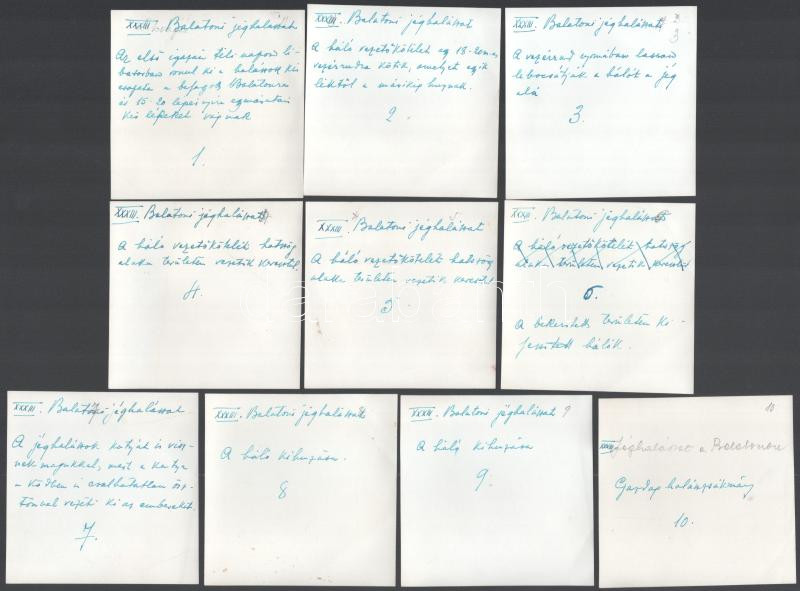 XXXIII. Balatoni jéghalászat
Az első igazán téli napon li-
basorban vonul ki a halászok kis
csapata a befagyott Balatonra
és 15-20 lépésnyire egymástól
kis lékeket vágnak
1.
XXXIII. Balatoni jéghalászat
A háló vezetőkötelét egy 18-20 m-es
vezérrudra kötik, amelyet egyik
léktől a másikig húznak.
2.
XXXIII. Balatoni jéghalászat 3
A vezérrud nyomában lassan
lebocsátják a hálót a jég
alá
3.
XXXIII. Balatoni jéghalászat
A háló vezetőkötelét hatszög
alaku területen vezetik keresztül.
4.
XXXIII. Balatoni jéghalászat
A háló vezetőkötelét hatszög
alaku területen vezetik keresztül
5
XXXIII. Balatoni jéghalászat
A háló vezetőkötelét hatszög
alaku területen vezetik keresztül
6.
A bekerített területen ki-
feszített hálók.
XXXIII. Balatoni jéghalászat
A jéghalászok kutyát is visz-
nek magukkal, mert a kutya
a ködben is csalhatatlan ösz-
tönnel vezeti ki az embereket.
7.
XXXIII. Balatoni jéghalászat
A háló kihuzása.
8
XXXIII. Balatoni jéghalászat 9
A háló kihuzása
9.
10
XXXIII Jéghalászat a Balatonon
Gazdag halászzsákmány
10.